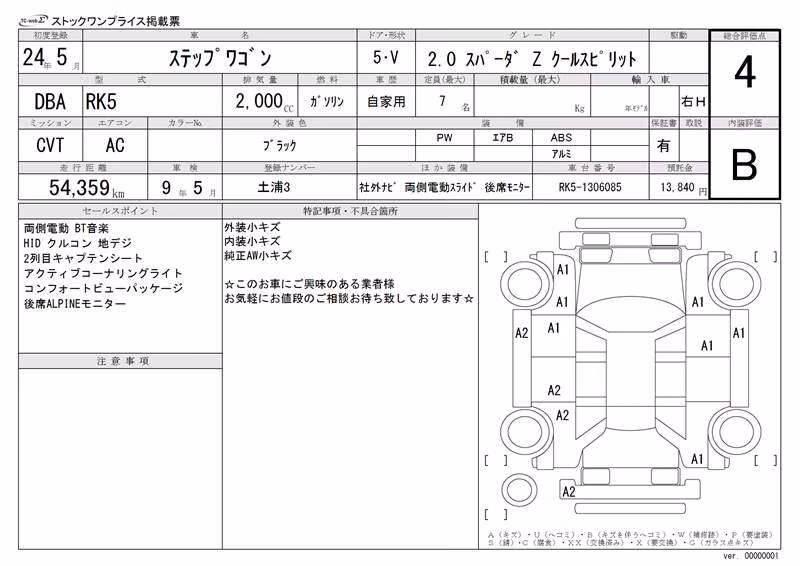 TC-webΣ ストックワンプライス掲載票
初度登録 車名 ドア・形状 グレード 駆動 総合評価点
24年 5月 ステップワゴン 5・V 2.0 スパーダ Z クールスピリット 4
型式 排気量 燃料 車歴 定員(最大) 積載量(最大) 輸入車
DBA RK5 2,000CC ガソリン 自家用 7名 Kg 年モデル 右H
ミッション エアコン カラーNo. 外装色 装備 保証書 取説 内装評価
CVT AC ブラック PW エアB ABS 有 B
アルミ
走行距離 車検 登録ナンバー ほか装備 車台番号 預託金
54,359km 9年 5月 土浦3 社外ナビ 両側電動スライド 後席モニター RK5-1306085 13,840円
セールスポイント
両側電動 BT音楽
HID クルコン 地デジ
2列目キャプテンシート
アクティブコーナリングライト
コンフォートビューパッケージ
後席ALPINEモニター
注意事項
特記事項・不具合箇所
外装小キズ
内装小キズ
純正AW小キズ
☆このお車にご興味のある業者様
お気軽にお値段のご相談お待ち致しております☆
[ ] [ ]
A1
A1 A1
A2 A1 A1
A1
A2
A2
A1
[ ] [ ]
A2
[ ] [ ]
A(キズ)・U(ヘコミ)・B(キズを伴うヘコミ)・W(補修跡)・P(要塗装)
S(錆)・C(腐食)・XX(交換済み)・X(要交換)・G(ガラス点キズ)
ver. 00000001